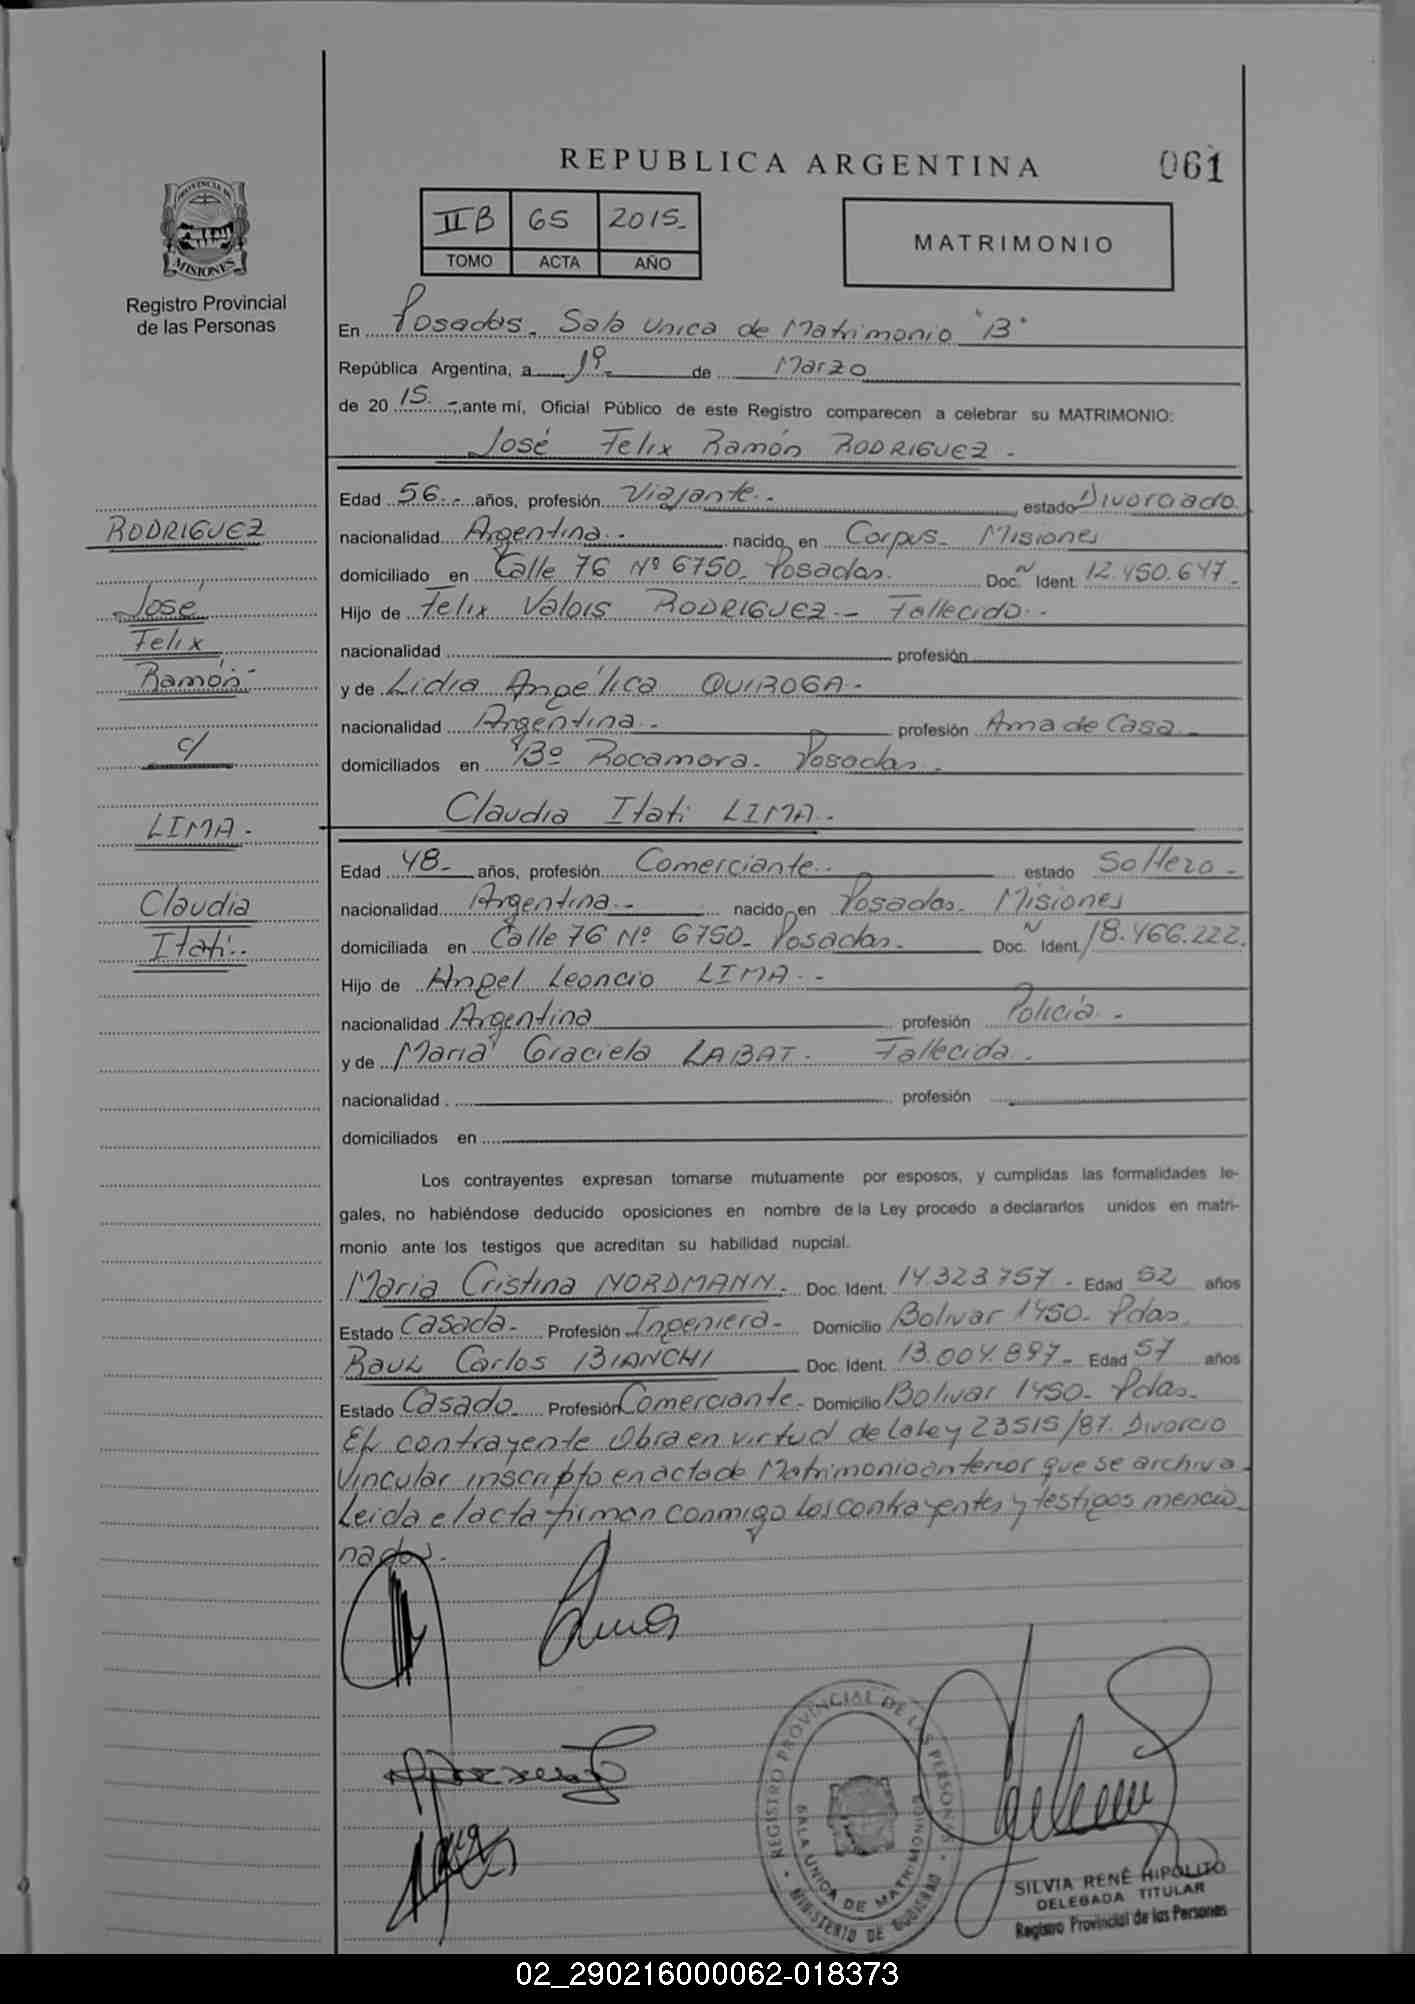 REPUBLICA ARGENTINA
061
PROVINCIA DE
MISIONES
Registro Provincial
de las Personas
II B 65 2015.-
TOMO ACTA AÑO
MATRIMONIO
En Posadas. Sala Unica de Matrimonio "B"
República Argentina, a 1º de Marzo
de 20 15.- , ante mí, Oficial Público de este Registro comparecen a celebrar su MATRIMONIO:
José Felix Ramón RODRIGUEZ.-
RODRIGUEZ
José
Felix
Ramón-
c/
LIMA.-
Claudia
Itati.-
Edad 56.- años, profesión Viajante.- estado Divorciado.
nacionalidad Argentina.- nacido en Corpus- Misiones
domiciliado en Calle 76 Nº 6750. Posadas. Doc. Ñ Ident. 12.450.647.-
Hijo de Felix Valois RODRIGUEZ.- Fallecido.-
nacionalidad profesión
y de Lidia Angélica QUIROGA.-
nacionalidad Argentina.- profesión Ama de Casa.-
domiciliados en Bº Rocamora. Posadas.-
Claudia Itati LIMA.-
Edad 48.- años, profesión Comerciante.- estado Soltera.-
nacionalidad Argentina.- nacido en Posadas. Misiones
domiciliada en Calle 76 Nº 6750. Posadas.- Doc. Ñ Ident. 18.466.222.
Hijo de Angel Leoncio LIMA.-
nacionalidad Argentina profesión Policía.-
y de Maria Graciela LABAT. Fallecida.
nacionalidad profesión
domiciliados en
Los contrayentes expresan tomarse mutuamente por esposos, y cumplidas las formalidades le-
gales, no habiéndose deducido oposiciones en nombre de la Ley procedo a declararlos unidos en matri-
monio ante los testigos que acreditan su habilidad nupcial.
Maria Cristina NORDMANN.- Doc. Ident. 14.323.757.- Edad 52 años
Estado Casada.- Profesión Ingeniera.- Domicilio Bolivar 1450. Pdas.
Raul Carlos BIANCHI Doc. Ident. 13.004.897.- Edad 57 años
Estado Casado.- Profesión Comerciante.- Domicilio Bolivar 1450. Pdas.
El contrayente obra en virtud de la ley 23515/87. Divorcio
Vincular inscripto en acta de Matrimonio anterior que se archiva.
Leida el acta firman conmigo los contrayentes y testigos mencio-
nados.
REGISTRO PROVINCIAL DE LAS PERSONAS
SALA UNICA DE MATRIMONIOS
MINISTERIO DE GOBIERNO
SILVIA RENÉ HIPOLITO
DELEGADA TITULAR
Registro Provincial de las Personas
02_290216000062-018373